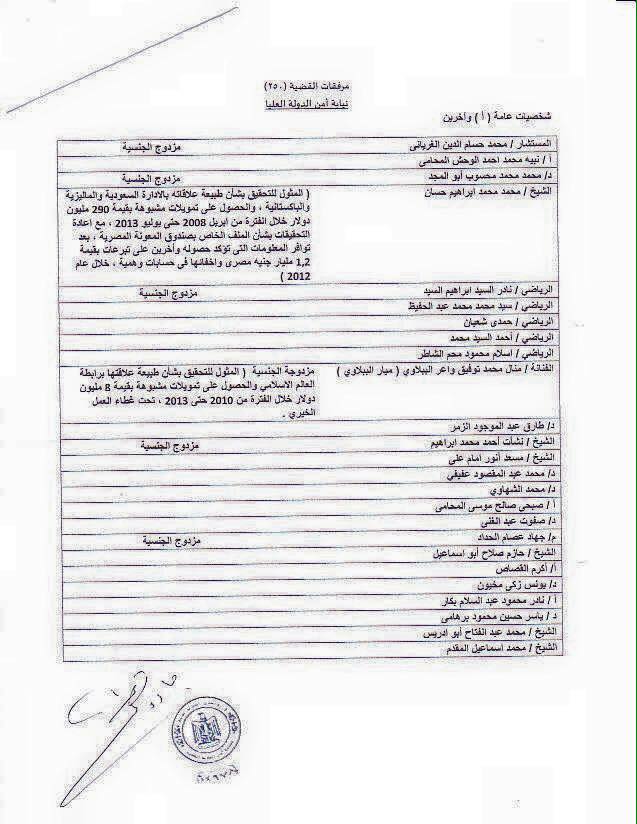 مرفقات القضية (٢٥٠)
نيابة أمن الدولة العليا
شخصيات عامة ( أ ) وآخرين
المستشار / محمد حسام الدين الغرياني مزدوج الجنسية
أ / نبيه محمد احمد الوحش المحامى
د/ محمد محمد محسوب أبو المجد مزدوج الجنسية
الشيخ / محمد محمد ابراهيم حسان ( المثول للتحقيق بشأن طبيعة علاقاته بالادارة السعودية والماليزية
والباكستانية ، والحصول على تمويلات مشبوهة بقيمة 290 مليون
دولار خلال الفترة من ابريل 2008 حتى يوليو 2013 ، مع اعادة
التحقيقات بشأن الملف الخاص بصندوق المعونة المصرية ، بعد
توافر المعلومات التى تؤكد حصوله وأخرين على تبرعات بقيمة
1,2 مليار جنيه مصرى واخفائها فى حسابات وهمية ، خلال عام
2012 )
الرياضي / نادر السيد ابراهيم السيد مزدوج الجنسية
الرياضي / سيد محمد محمد عبد الحفيظ
الرياضي / حمدى شعبان
الرياضي / أحمد السيد محمد
الرياضي / اسلام محمود محم الشاطر
الفنانة / منال محمد توفيق واعر الببلاوي ( ميار الببلاوي ) مزدوجة الجنسية ( المثول للتحقيق بشأن طبيعة علاقتها برابطة
العالم الاسلامي والحصول على تمويلات مشبوهة بقيمة 8 مليون
دولار خلال الفترة من 2010 حتى 2013 ، تحت غطاء العمل
الخيري .
د/ طارق عبد الموجود الزمر
الشيخ / نشأت أحمد محمد ابراهيم مزدوج الجنسية
الشيخ / مسعد أنور امام على
د/ محمد عبد المقصود عفيفي
د/ محمد الشهاوي
أ / صبحي صالح موسى المحامى
د/ صفوت عبد الغنى
م/ جهاد عصام الحداد مزدوج الجنسية
الشيخ / حازم صلاح أبو اسماعيل
أ/ أكرم القصاص
د/ يونس زكى مخيون
أ / نادر محمود عبد السلام بكار
د / ياسر حسين محمود برهامى
الشيخ / محمد عبد الفتاح أبو ادريس
الشيخ / محمد اسماعيل المقدم